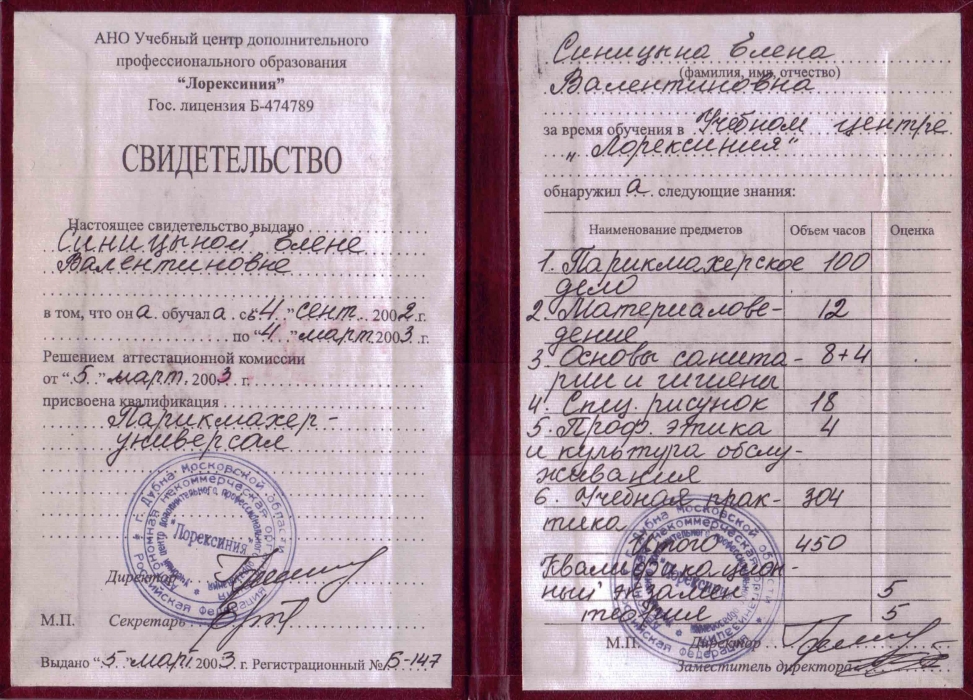 АНО Учебный центр дополнительного
профессионального образования
“Лорексиния”
Гос. лицензия Б-474789
СВИДЕТЕЛЬСТВО
Настоящее свидетельство выдано
Синицыной Елене
Валентиновне
в том, что она обучалась “4” сент. 2002 г.
по “4” март 2003 г.
Решением аттестационной комиссии
от “5” март. 2003 г.
присвоена квалификация
Парикмахер-
универсал
г. Дубна Московской области
Российская Федерация
“Лорексиния”
Директор
М.П. Секретарь
Выдано “5” март 2003 г. Регистрационный № Б-147
Синицына Елена
(фамилия, имя, отчество)
Валентиновна
за время обучения в Учебном центре
„Лорексиния“
обнаружила следующие знания:
Наименование предметов Объем часов Оценка
1. Парикмахерское 100
дело
2. Материалове- 12
дение
3. Основы санита- 8+4
рии и гигиены
4. Спец. рисунок 18
5. Проф. этика 4
и культура обслу-
живания
6. Учебная прак- 304
тика
Итого 450
Квалификацион-
ный экзамен 5
теория 5
М.П. Директор
Заместитель директора